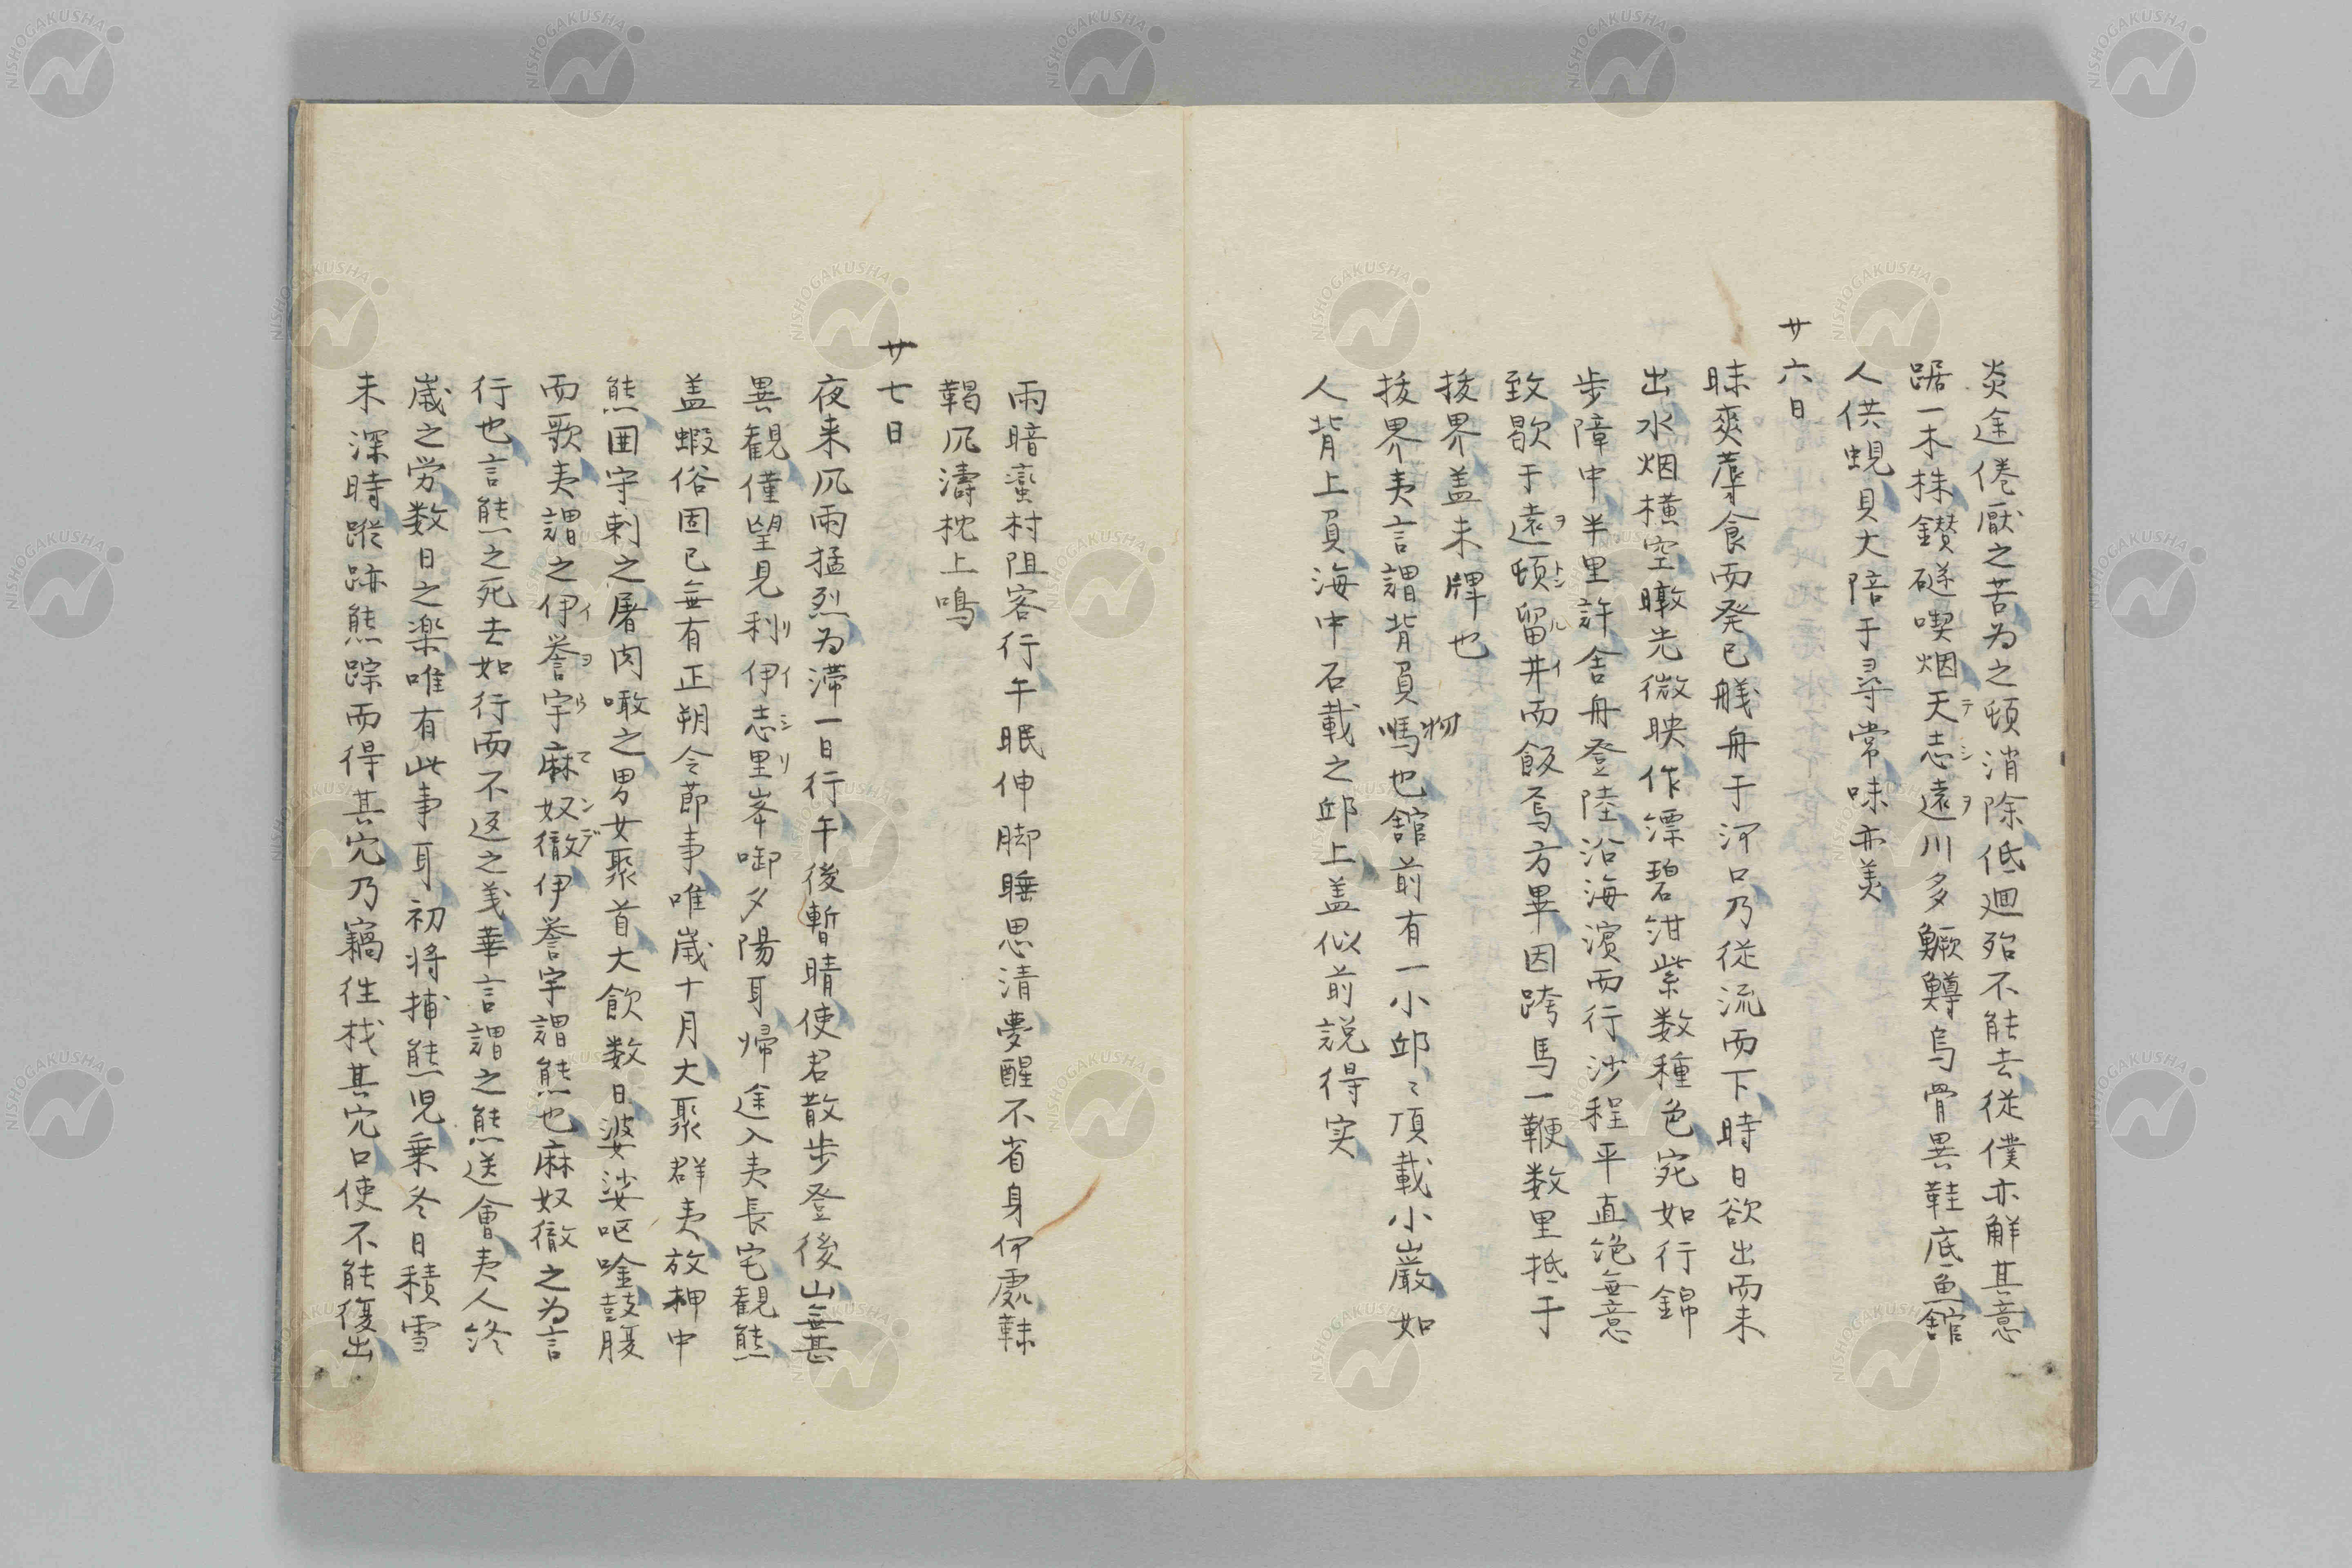 炎途倦厭之苦為之頓消除低廻殆不能去従僕亦解其意
踞一木株鑚燧喫烟天志遠川多鱖鱒烏骨異鞋底魚舘
人供蜆貝大陪于尋常味亦美
廿六日
昧爽蓐食而発已艤舟于河口乃従流而下時日欲出而未
出水烟横空暾光微映作漂碧泔紫数種色宛如行錦
歩障中半里許舎舟登陸沿海濵而行沙程平直絶無意
致歇于遠頓留井而飯焉方畢因跨馬一鞭数里抵于
拨界盖未牌也
拨界夷言謂背負嗎也舘前有一小邱〻頂載小巌如
人背上負海中石載之邱上盖似前説得実
雨暗蛮村阻客行午眠伸脚睡思清夢醒不省身何處靺
鞨凨濤枕上鳴
廿七日
夜来凨雨猛烈為滞一日行午後暫晴使君散歩登後山無甚
異観僅望見利伊志里峯啣夕陽耳帰途入夷長宅観熊
盖蝦俗固已無有正朔令節事唯歳十月大聚群夷放柙中
熊囲宇刺之屠肉噉之男女聚首大飲数日婆娑呕唫鼓腹
而歌夷謂之伊誉宇麻奴徹伊誉宇謂熊也麻奴徹之為言
行也言熊之死去如行而不返之義華言謂之熊送會夷人終
歳之労数日之楽唯有此事耳初将捕熊児乗冬日積雪
未深時蹤跡熊踪而得其穴乃竊往栈其穴口使不能復出